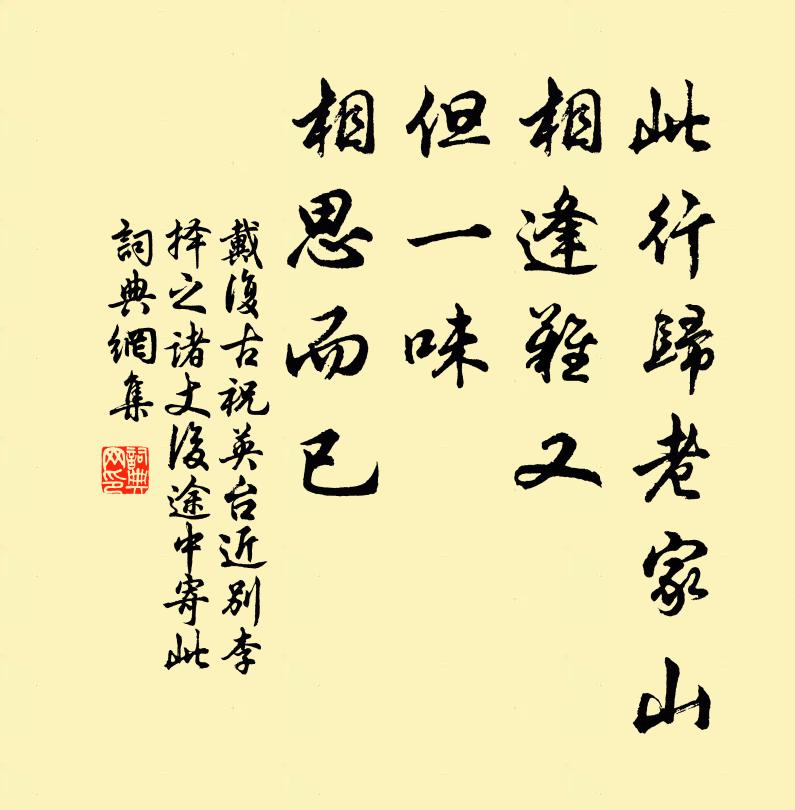 此行歸老家山
相逢難又
但一味
相思而已
戴復古祝英台近別李
择之諸丈後途中寄此
詞典網集
詞典
网印